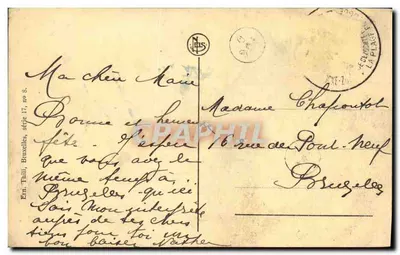 Ma chère Marie
Bonne et heureuse
fête. J'espère
que vous avez le
même temps à
Bruxelles qu'ici
Sois mon interprète
auprès de tes chers
tiens pour toi un
bon baiser
Madame Chapoutot
16 rue du Pont-Neuf
Bruxelles
Ern. Thill, Bruxelles, série 17, no 9.
CPAPHIL
LA PLAGE